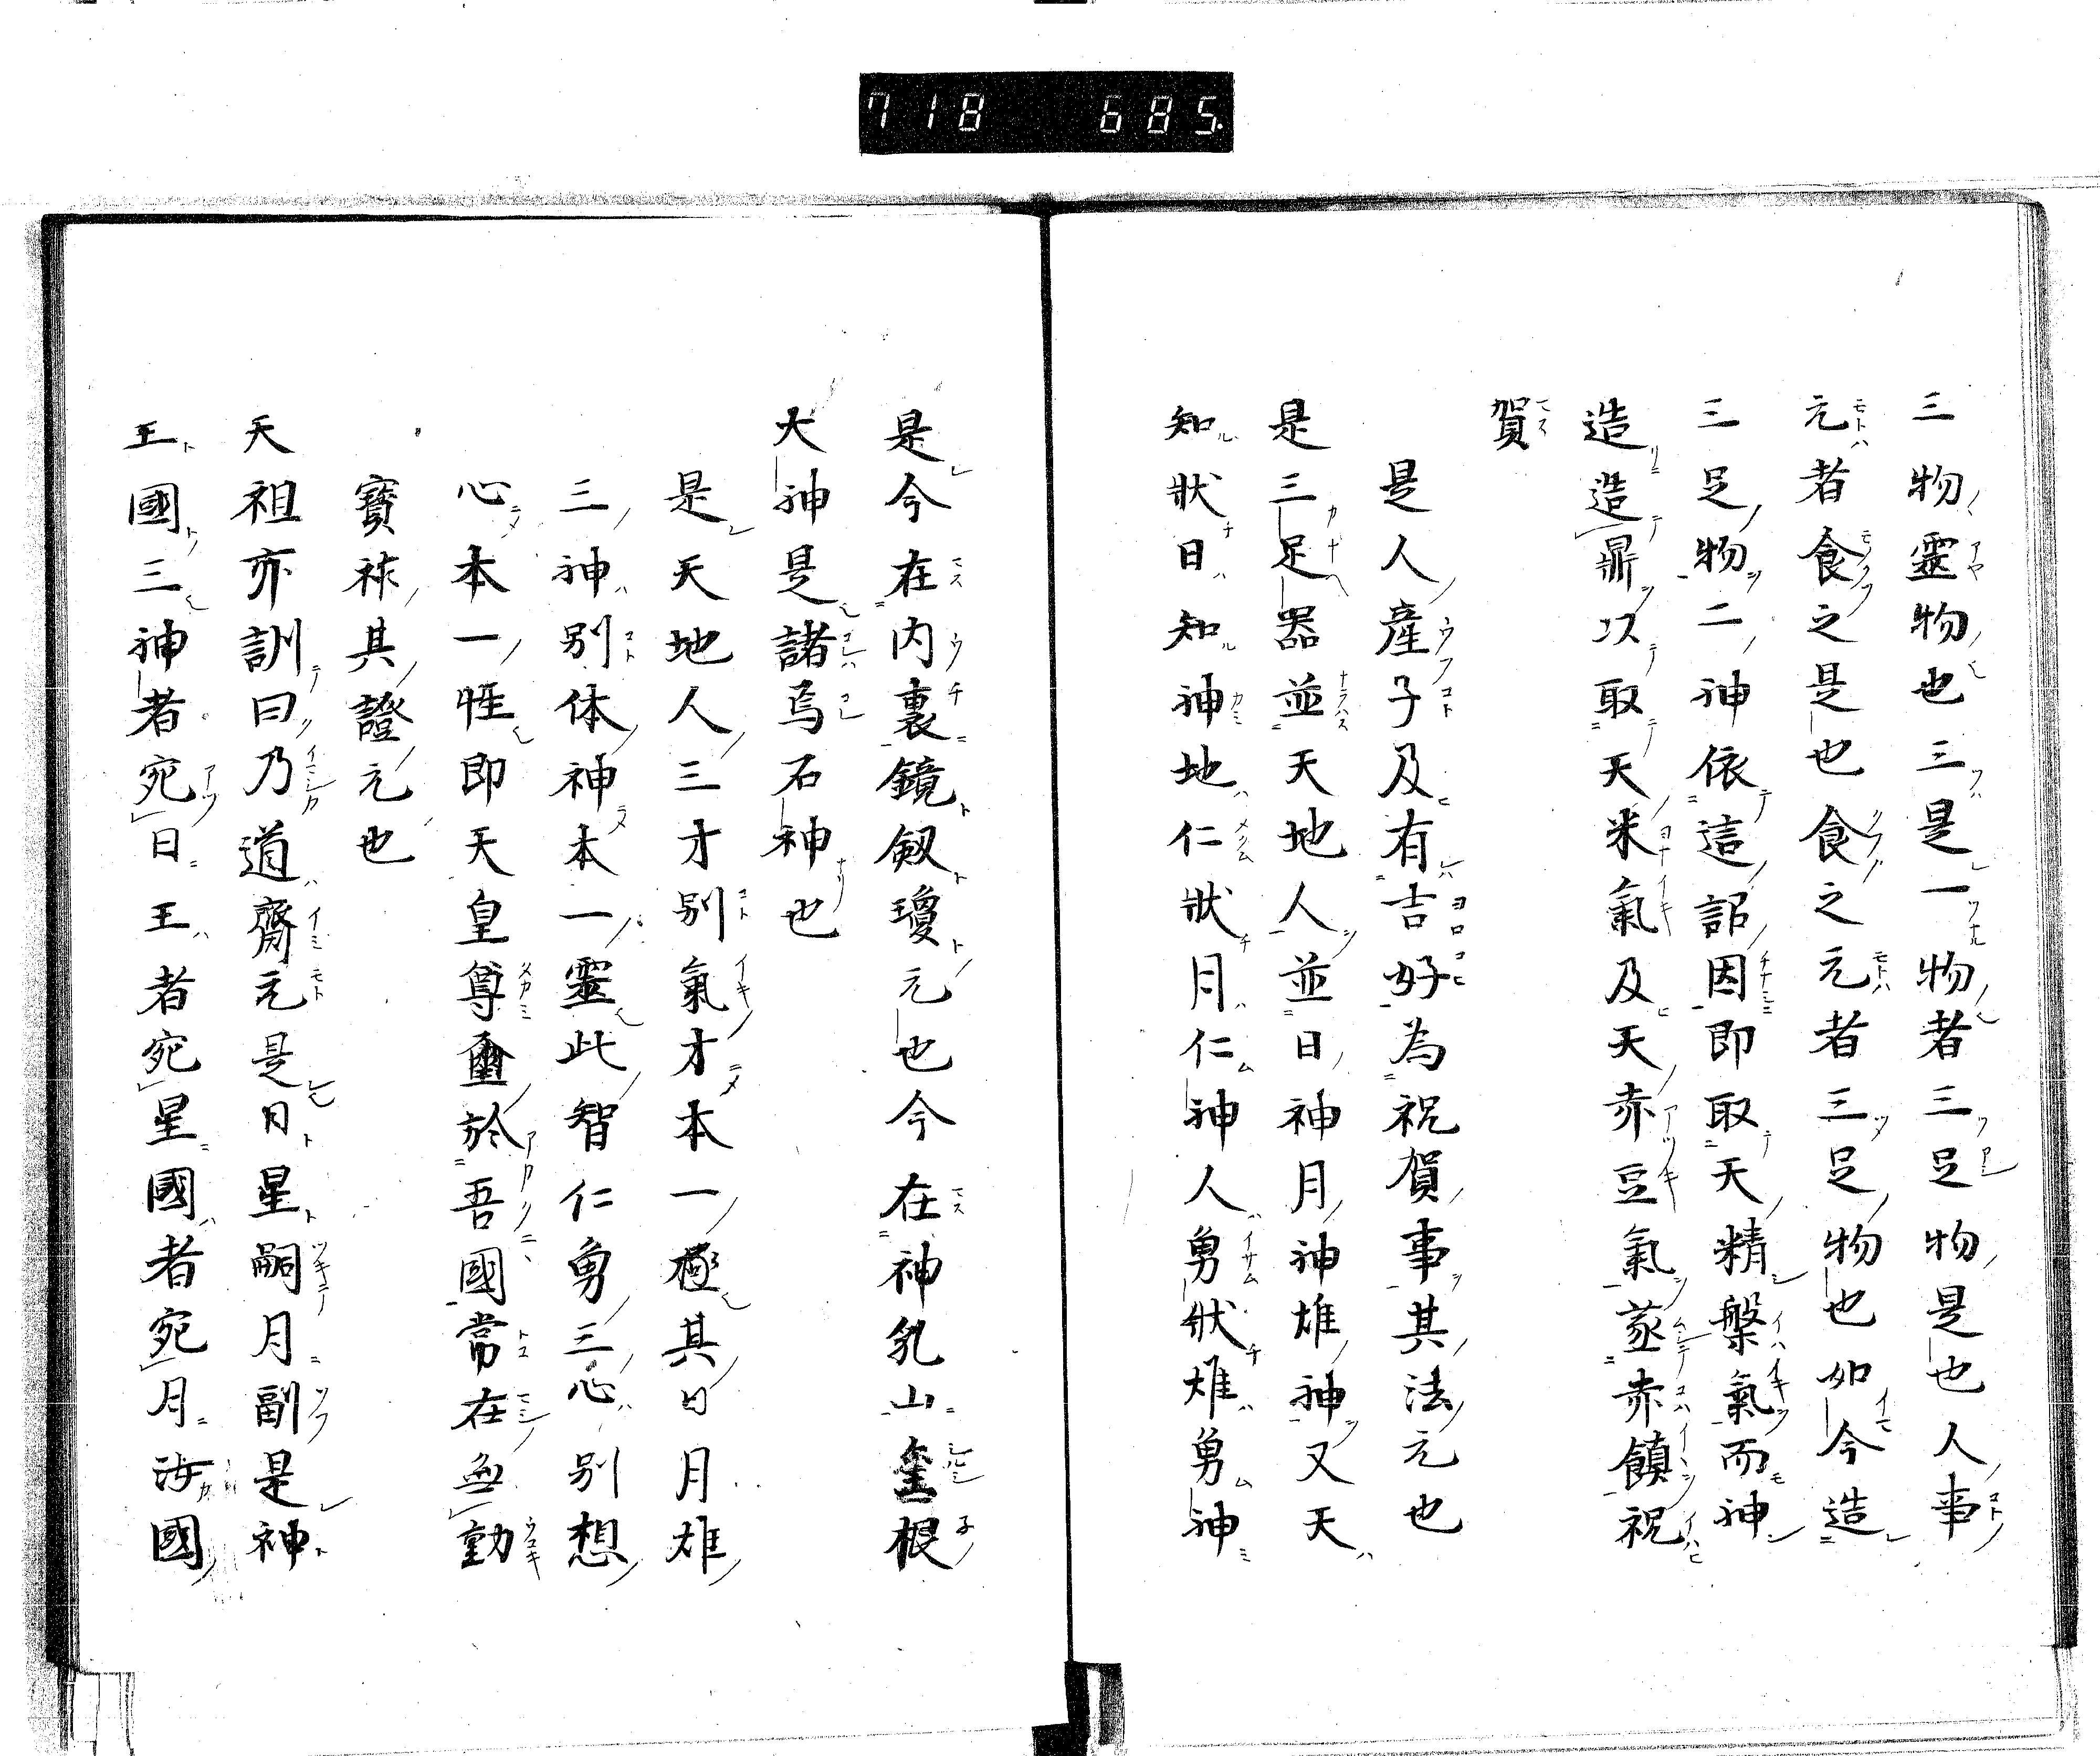 718 685.
三物靈物也三是一物者三足物是也人事
元者食之是也食之元者三足物也如今造
三足物二神依這詔因即取天精槃氣而神
造造鼎以取天米氣及天赤豆氣蒸赤饙祝
賀
是人產子及有吉好為祝賀事其法元也
是三足器並天地人並日神月神雄神又天
知狀日知神地仁狀月仁神人勇狀雄勇神
是今在內裏鏡劔瓊元也今在神乳山奎根
大神是諸焉石神也
是天地人三才別氣才本一極其日月雄
三神別体神本一靈此智仁勇三心別想
心本一性即天皇尊璽於吾國常在無動
寶祚其證元也
天祖亦訓曰乃道齋元是日星嗣月副是神
王國三神者宛日王者宛星國者宛月汝國